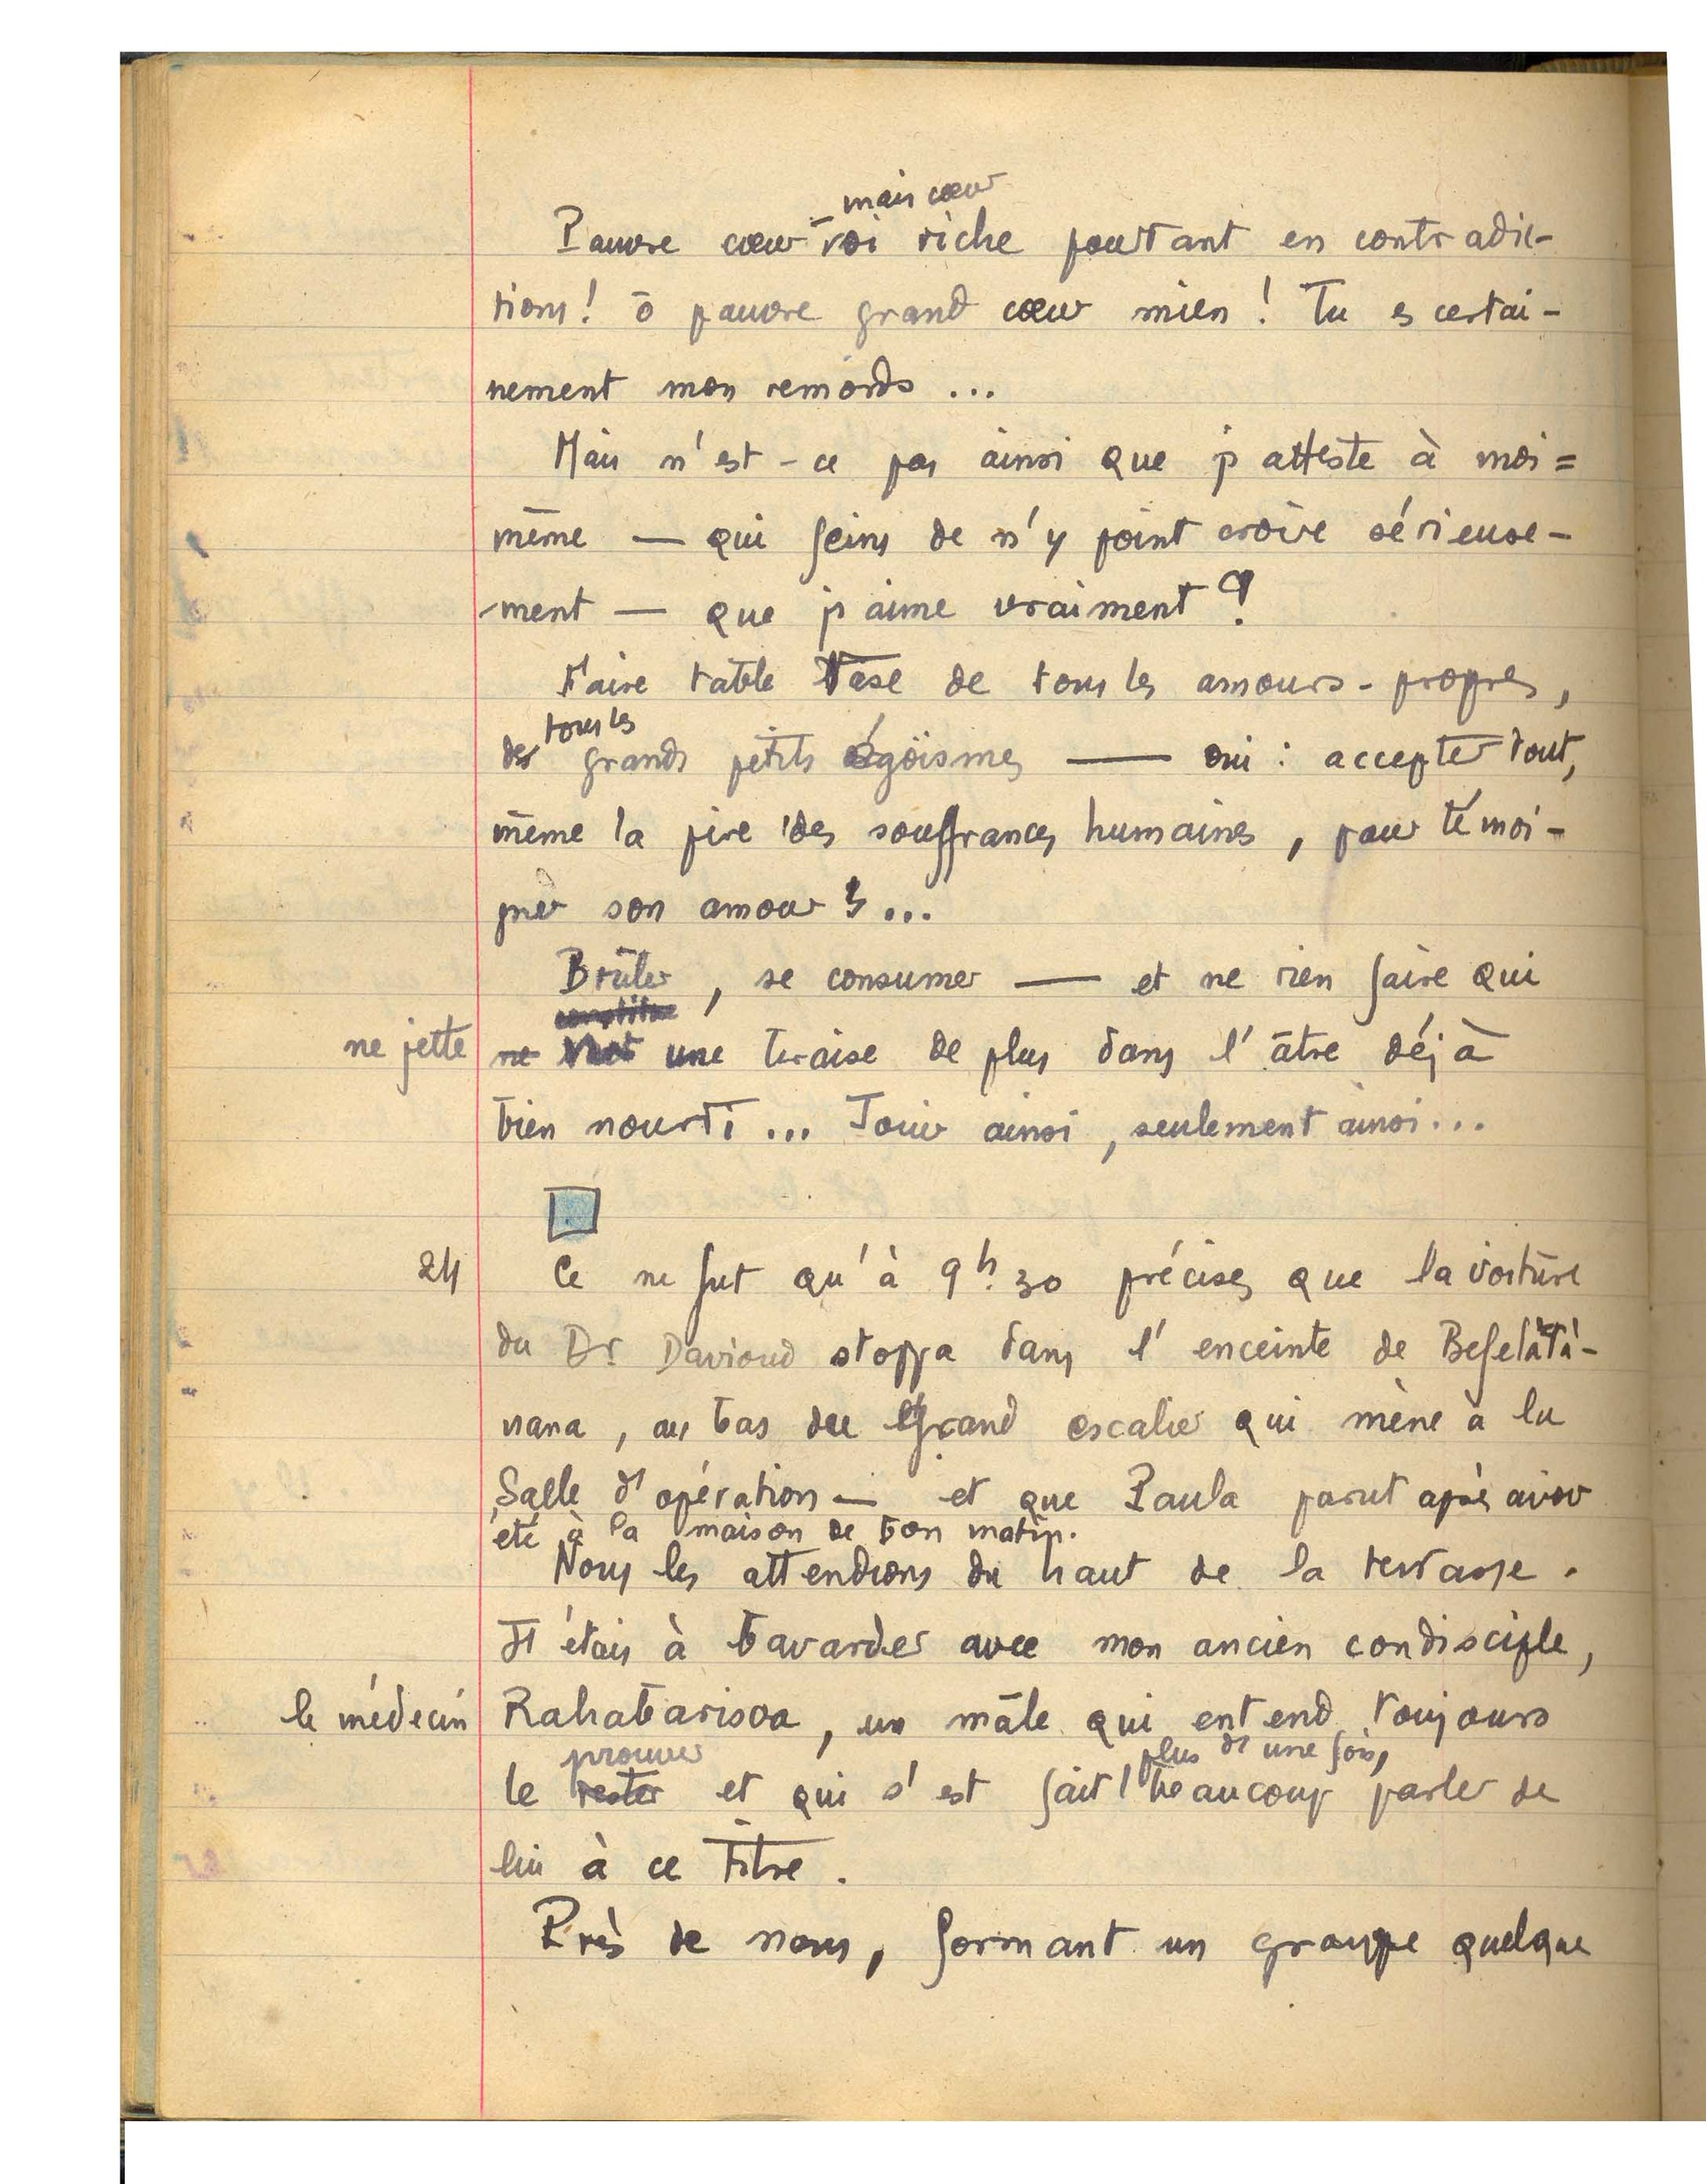 mais cœur
Pauvre cœur roi riche pourtant en contradic-
tions! ô pauvre grand cœur mien! Tu es certai-
nement mon remords ...
Mais n'est-ce pas ainsi que j'atteste à moi=
même — qui feins de n'y point croire sérieuse-
-ment — que j'aime vraiment?
Faire table rase de tous les amours-propres,
tous les
des grands petits égoïsmes — oui: accepter tout,
même la pire des souffrances humaines, pour témoi-
gner son amour! ...
Brûler, se consumer — et ne rien faire qui
constitue
ne jette
ne une braise de plus dans l'âtre déjà
bien nourri ... Jouir ainsi, seulement ainsi...
24
Ce ne fut qu'à 9h.30 précises que la voiture
du Dr Davioud stoppa dans l'enceinte de Befelàtà-
nana, au bas du grand escalier qui mène à la
Salle d'opération — et que Paula parut après avoir
été à la maison de bon matin.
Nous les attendions du haut de la terrasse.
J'étais à bavarder avec mon ancien condisciple,
le médecin
Rahabarisoa, un mâle qui entend toujours
prouver
plus d'une fois,
le rester et qui s'est fait beaucoup parler de
lui à ce titre.
Près de nous, formant un groupe quelque